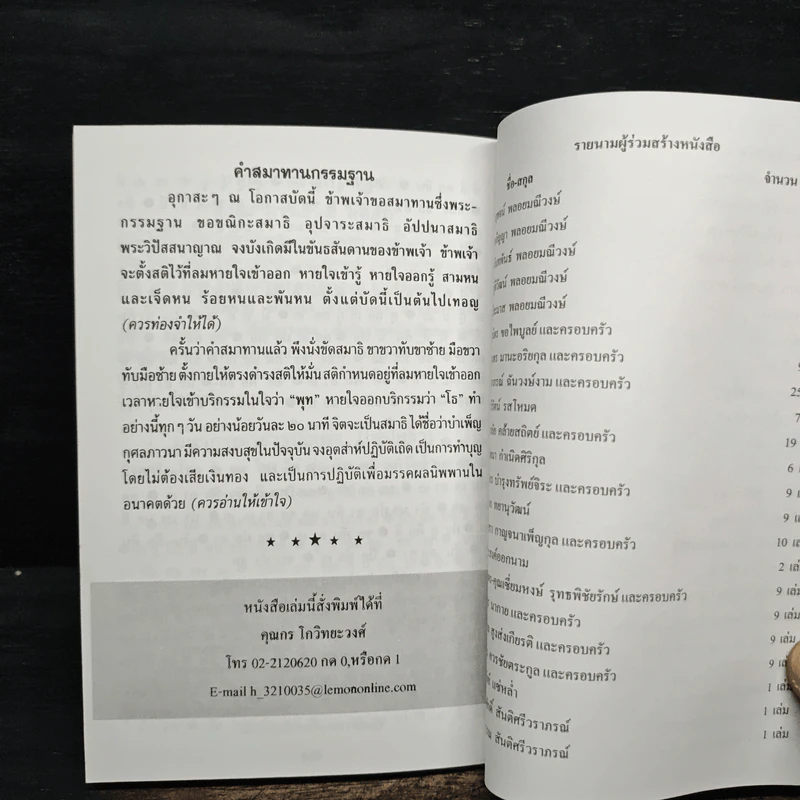 คำสมาทานกรรมฐาน
อุกาสะๆ ณ โอกาสบัดนี้ ข้าพเจ้าขอสมาทานซึ่งพระ-
กรรมฐาน ขอขณิกะสมาธิ อุปจาระสมาธิ อัปปนาสมาธิ
พระวิปัสสนาญาณ จงบังเกิดมีในขันธสันดานของข้าพเจ้า ข้าพเจ้า
จะตั้งสติไว้ที่ลมหายใจเข้าออก หายใจเข้ารู้ หายใจออกรู้ สามหน
และเจ็ดหน ร้อยหนและพันหน ตั้งแต่บัดนี้เป็นต้นไปเทอญ
(ควรท่องจำให้ได้)
ครั้นว่าคำสมาทานแล้ว พึงนั่งขัดสมาธิ ขาขวาทับขาซ้าย มือขวา
ทับมือซ้าย ตั้งกายให้ตรงดำรงสติให้มั่น สติกำหนดอยู่ที่ลมหายใจเข้าออก
เวลาหายใจเข้าบริกรรมในใจว่า “พุท” หายใจออกบริกรรมว่า “โธ” ทำ
อย่างนี้ทุกๆ วัน อย่างน้อยวันละ ๒๐ นาที จิตจะเป็นสมาธิ ได้ชื่อว่าบำเพ็ญ
กุศลภาวนา มีความสงบสุขในปัจจุบัน จงอุตส่าห์ปฏิบัติเถิด เป็นการทำบุญ
โดยไม่ต้องเสียเงินทอง และเป็นการปฏิบัติเพื่อมรรคผลนิพพานใน
อนาคตด้วย (ควรอ่านให้เข้าใจ)
หนังสือเล่มนี้สั่งพิมพ์ได้ที่
คุณกร โกวิทยะวงศ์
โทร 02-2120620 กด 0,หรือกด 1
E-mail h_3210035@lemononline.com
รายนามผู้ร่วมสร้างหนังสือ
ชื่อ-สกุล จำนวน
พลอยมณีวงษ์
พลอยมณีวงษ์
พลอยมณีวงษ์
พลอยมณีวงษ์
พลอยมณีวงษ์
ขอไพบูลย์ และครอบครัว
มานะอริยกุล และครอบครัว
ฉันวงษ์งาม และครอบครัว 25
รสโหมด 7
คล้ายสถิตย์ และครอบครัว 19
กำเนิดศิริกุล 6
บำรุงทรัพย์จิระ และครอบครัว 9
พยานุวัฒน์ 9
กาญจนาเพ็ญกูล และครอบครัว 10
2
รุทธพิชัยรักษ์ และครอบครัว 9
และครอบครัว 9 เล่ม
สูงส่งเกียรติ และครอบครัว 9
ควรชัยตระกูล และครอบครัว 9
แซ่หล่ำ 1 เล่ม
สันติศรีวราภรณ์ 1 เล่ม
สันติศรีวราภรณ์ 1 เล่ม